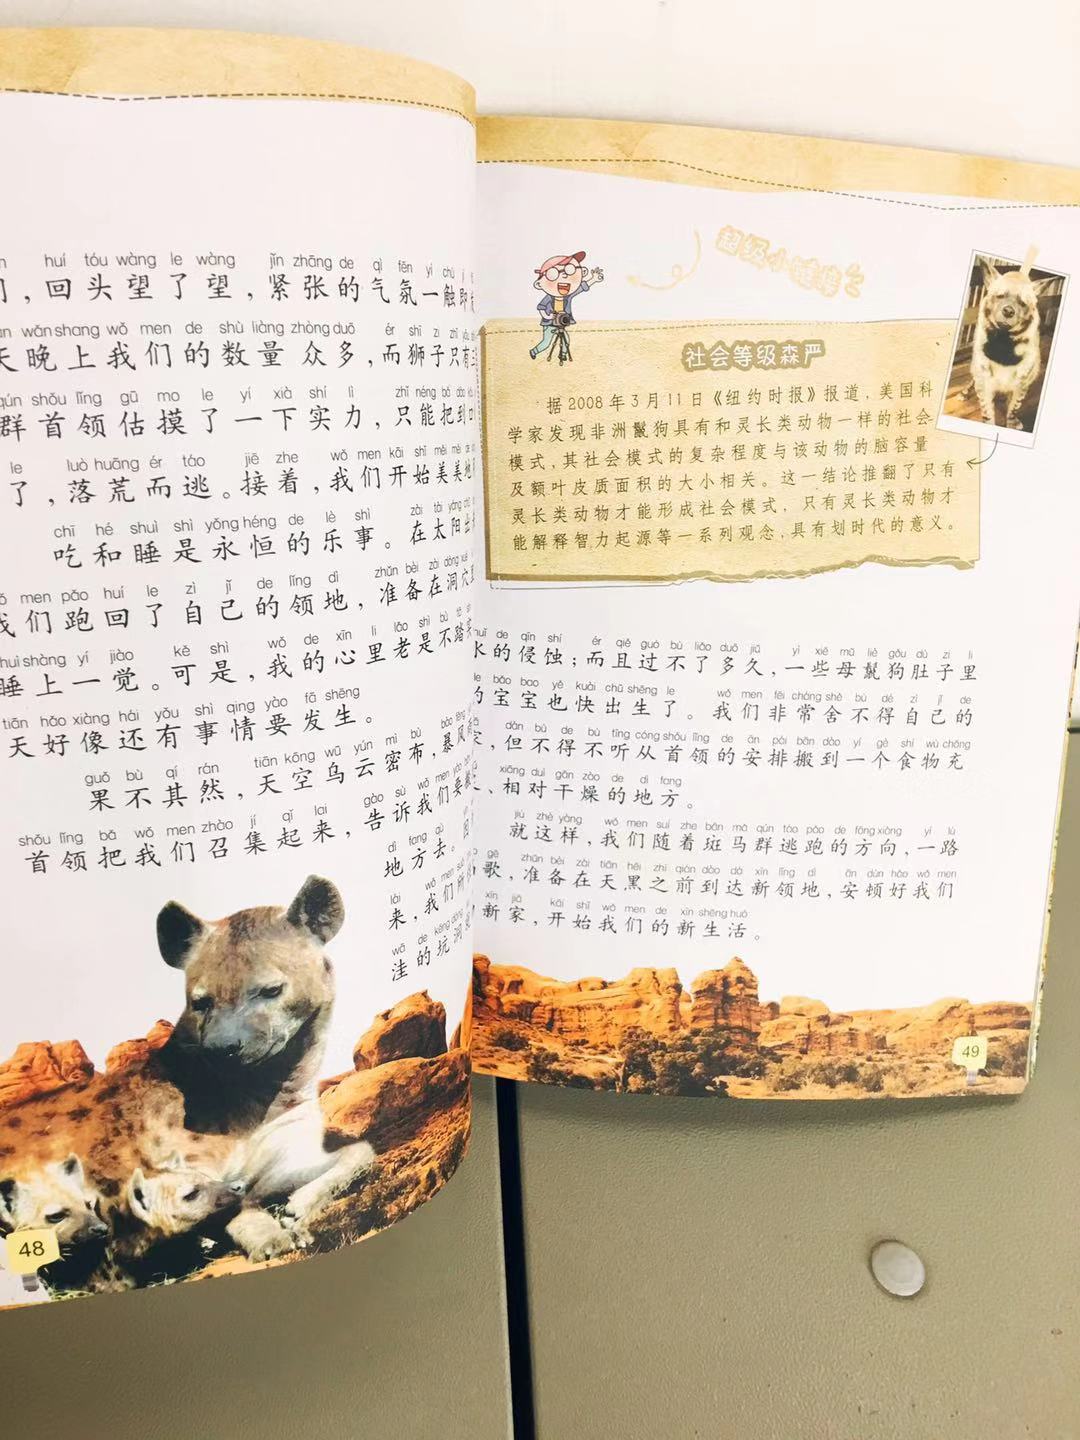 huí tóu wàng le wàng jǐn zhāng de qì fēn yí chù jí
，回头望了望，紧张的气氛一触即
wǎn shang wǒ men de shù liàng zhòng duō ér shī zi zhǐ yǒu
天晚上我们的数量众多，而狮子只有三
qún shǒu lǐng gū mo le yí xià shí lì zhǐ néng bǎ dào
群首领估摸了一下实力，只能把到口
le luò huāng ér táo jiē zhe wǒ men kāi shǐ měi měi de
了，落荒而逃。接着，我们开始美美地
chī hé shuì shì yǒng héng de lè shì zài tài yáng chū
吃和睡是永恒的乐事。在太阳出
men pǎo huí le zì jǐ de lǐng dì zhǔn bèi zài dòng xué
我们跑回了自己的领地，准备在洞穴里
shuì shàng yí jiào kě shì wǒ de xīn li lǎo shì bù tā shi
睡上一觉。可是，我的心里老是不踏实
tiān hǎo xiàng hái yǒu shì qing yào fā shēng
天好像还有事情要发生。
guǒ bù qí rán tiān kōng wū yún mì bù bào fēng
果不其然，天空乌云密布，暴风雨
shǒu lǐng bǎ wǒ men zhào jí qǐ lai gào sù wǒ men yào
首领把我们召集起来，告诉我们要搬
dì fang qù
地方去。因
lái wǒ men suǒ
来，我们所
wā de kēng dòng
洼的坑洞
48
超级小链接
社会等级森严
据2008年3月11日《纽约时报》报道，美国科
学家发现非洲鬣狗具有和灵长类动物一样的社会
模式，其社会模式的复杂程度与该动物的脑容量
及额叶皮质面积的大小相关。这一结论推翻了只有
灵长类动物才能形成社会模式，只有灵长类动物才
能解释智力起源等一系列观念，具有划时代的意义。
shuǐ de qīn shí ér qiě guò bù liǎo duō jiǔ yì xiē mǔ liè gǒu dù zi li
水的侵蚀；而且过不了多久，一些母鬣狗肚子里
de bǎo bao yě kuài chū shēng le wǒ men fēi cháng shě bù dé zì jǐ de
的宝宝也快出生了。我们非常舍不得自己的
dàn bù dé bù tīng cóng shǒu lǐng de ān pái bān dào yí gè shí wù chōng
家，但不得不听从首领的安排搬到一个食物充
xiāng duì gān zào de dì fang
、相对干燥的地方。
jiù zhè yàng wǒ men suí zhe bān mǎ qún táo pǎo de fāng xiàng yí lù
就这样，我们随着斑马群逃跑的方向，一路
gē zhǔn bèi zài tiān hēi zhī qián dào dá xīn lǐng dì ān dùn hǎo wǒ men
歌，准备在天黑之前到达新领地，安顿好我们
xīn jiā kāi shǐ wǒ men de xīn shēng huó
新家，开始我们的新生活。
49